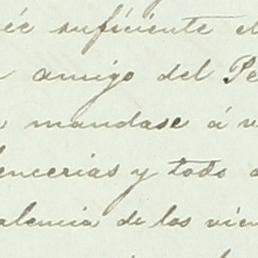 suficiente el
amigo del Pe
mandase á v
encerias y todo
alencia de los vien